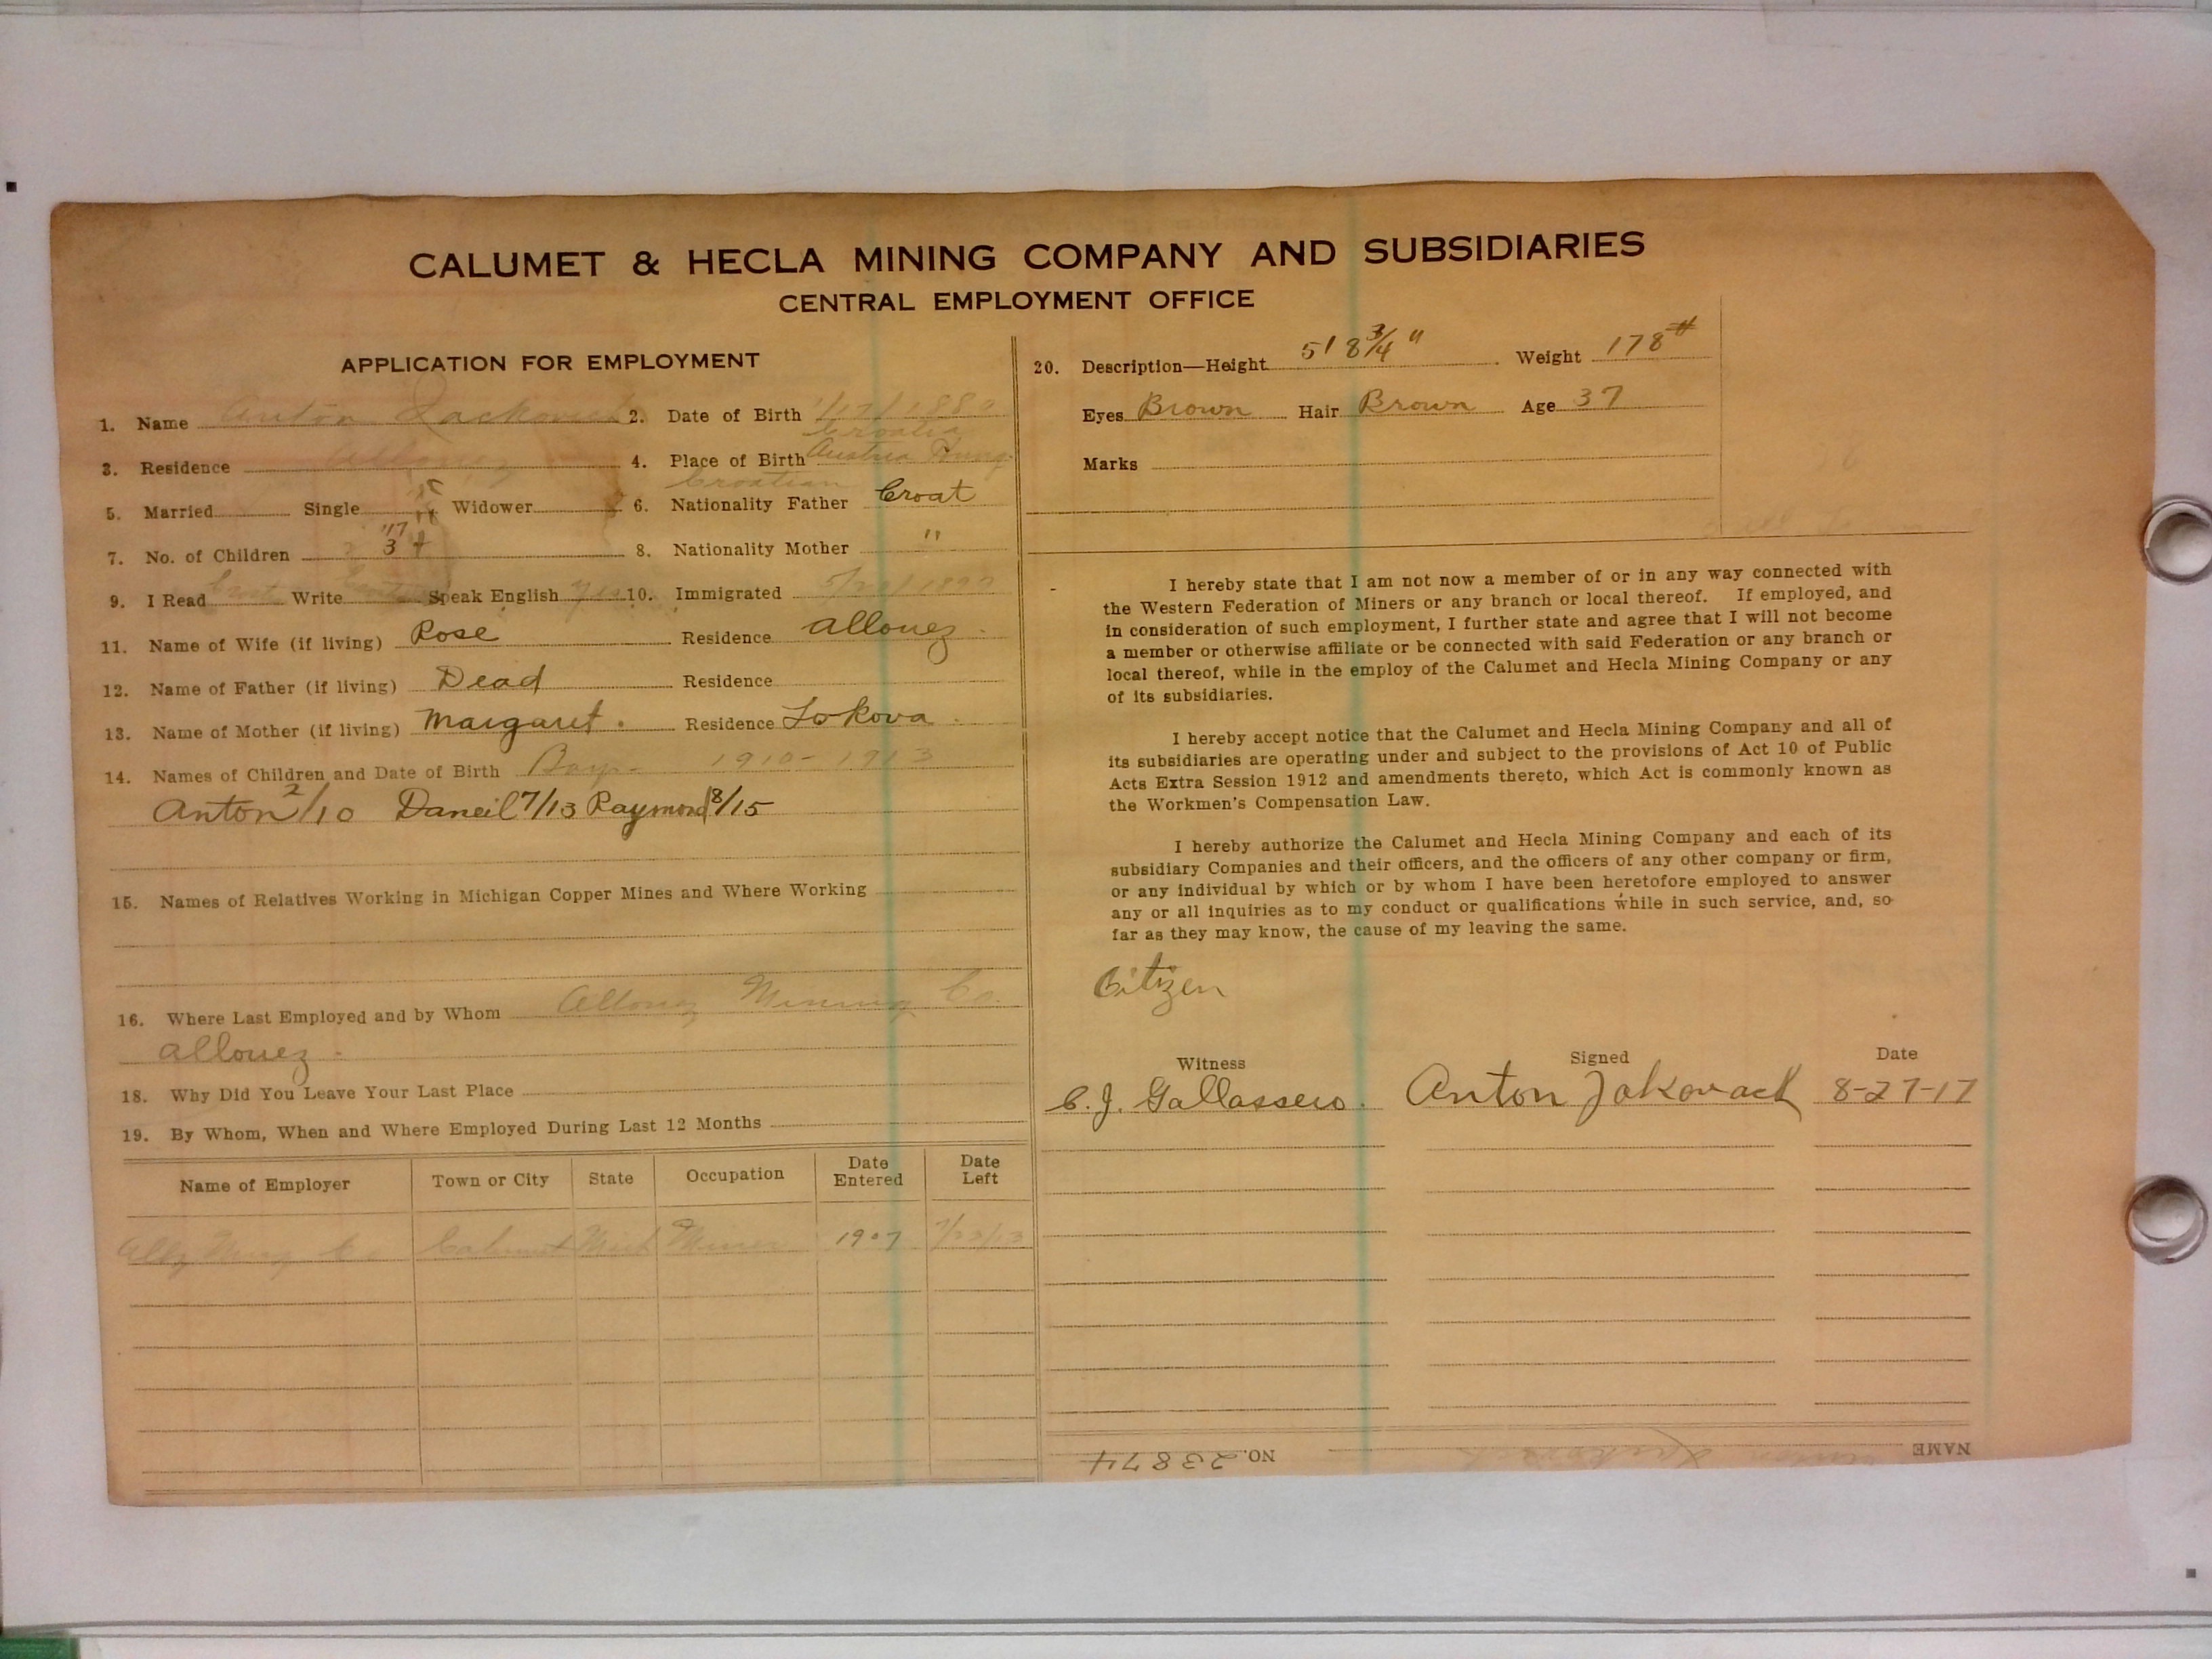 CALUMET & HECLA MINING COMPANY AND SUBSIDIARIES
CENTRAL EMPLOYMENT OFFICE
APPLICATION FOR EMPLOYMENT
1. Name Anton 2. Date of Birth
Croatia
3. Residence Allouez 4. Place of Birth Austria Hung.
Croatian
5. Married Single Widower 6. Nationality Father Croat
'17
7. No. of Children 3 8. Nationality Mother "
9. I Read Write Speak English yes 10. Immigrated
11. Name of Wife (if living) Rose Residence allouez.
12. Name of Father (if living) Dead Residence
13. Name of Mother (if living) Margaret. Residence Lokova.
14. Names of Children and Date of Birth Boys- 1910-1913
Anton 2/10 Daneil 7/13 Raymond 8/15
15. Names of Relatives Working in Michigan Copper Mines and Where Working
16. Where Last Employed and by Whom Allouez Mining Co.
allouez.
18. Why Did You Leave Your Last Place
19. By Whom, When and Where Employed During Last 12 Months
Name of Employer Town or City State Occupation Date Entered Date Left
Allz Ming Co Calumet Mich Miner 1907 7/23/13
20. Description—Height 5' 8 3/4" Weight 178#
Eyes Brown Hair Brown Age 37
Marks
I hereby state that I am not now a member of or in any way connected with
the Western Federation of Miners or any branch or local thereof. If employed, and
in consideration of such employment, I further state and agree that I will not become
a member or otherwise affiliate or be connected with said Federation or any branch or
local thereof, while in the employ of the Calumet and Hecla Mining Company or any
of its subsidiaries.
I hereby accept notice that the Calumet and Hecla Mining Company and all of
its subsidiaries are operating under and subject to the provisions of Act 10 of Public
Acts Extra Session 1912 and amendments thereto, which Act is commonly known as
the Workmen's Compensation Law.
I hereby authorize the Calumet and Hecla Mining Company and each of its
subsidiary Companies and their officers, and the officers of any other company or firm,
or any individual by which or by whom I have been heretofore employed to answer
any or all inquiries as to my conduct or qualifications while in such service, and, so
far as they may know, the cause of my leaving the same.
Citizen
Witness Signed Date
C. J. Gallassero. Anton Jakovack 8-27-17
NAME Anton NO. 23874